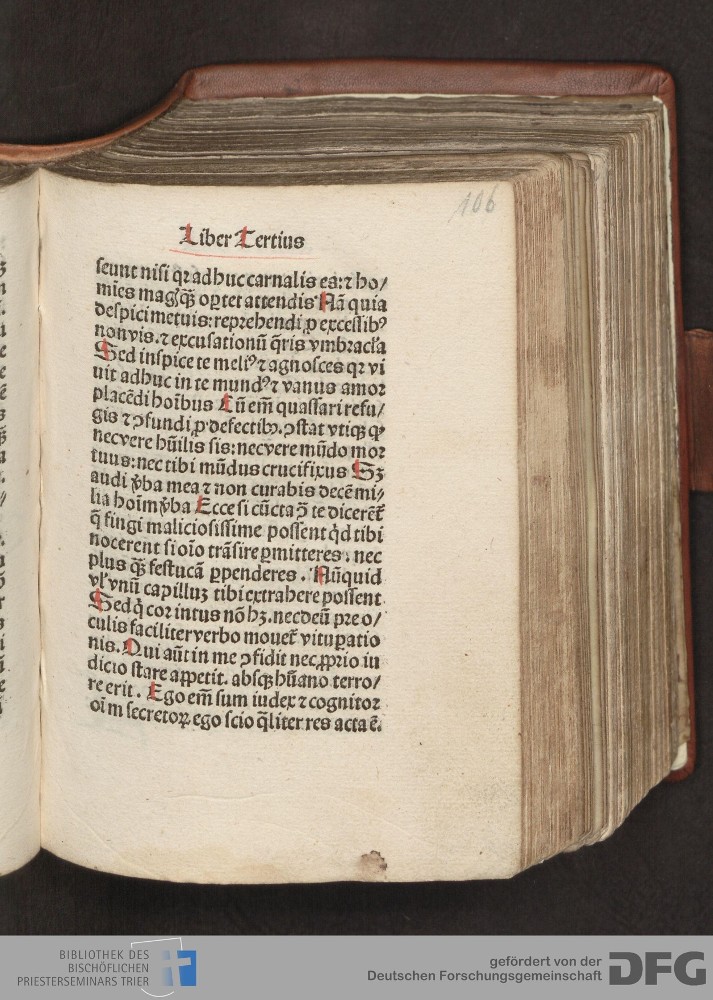 106
Liber Tertius
scunt nisi qꝛ adhuc carnalis es: ⁊ ho/
mīes magꝭ q̄ꝫ oꝑtet attendis Nā quia
despici metuis: reprehendi ꝓ excessibꝰ
non vis. ⁊ excusationū q̄ris vmbracl'a
Sed inspice te meliꝰ ⁊ agnosces qꝛ vi
uit adhuc in te mundꝰ ⁊ vanus amor
placēdi hoībus Cū em̄ quassari refu/
gis ⁊ ꝯfundi ꝓ defectibꝫ. ꝯstat vtiqꝫ ꝙ
nec vere hūilis sis: nec vere mūdo mor
tuus: nec tibi mūdus crucifixus Sꝫ
audi v̓ba mea ⁊ non curabis decē mi/
lia hoīm v̓ba Ecce si cūcta ꝯ̄ te dicerēt̄
q̄ fingi maliciosissime possent qd̓ tibi
nocerent si oīo trāsire ꝑmitteres. nec
plus q̄ꝫ festucā ꝑpenderes. Nūquid
vl' vnū capilluꝫ tibi extrahere possent
Sed q̇ cor intus nō hꝫ. nec deū pre o/
culis faciliter verbo mouet̄ vituꝑatio
nis. Qui aūt in me ꝯfidit nec ꝓprio iu
dicio stare appetit. absqꝫ hūano terro/
re erit. Ego em̄ sum iudex ⁊ cognitor
oīm secretoꝝ ego scio q̄liter res acta ē.
BIBLIOTHEK DES
BISCHÖFLICHEN
PRIESTERSEMINARS TRIER
gefördert von der
Deutschen Forschungsgemeinschaft
DFG